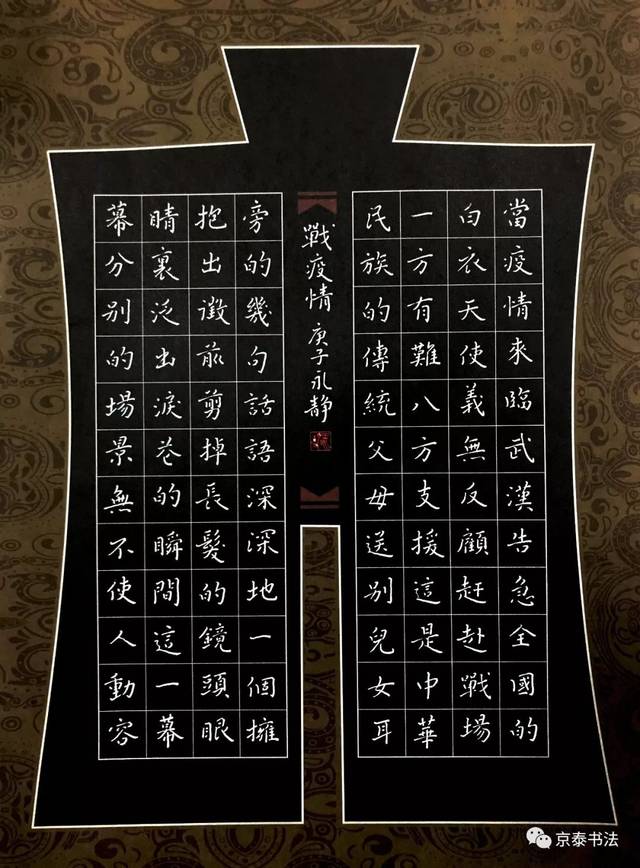 當疫情來臨武漢告急全國的
白衣天使義無反顧赶赴戰場
一方有難八方支援這是中華
民族的傳統父母送別兒女耳
戰疫情 庚子永靜
旁的幾句話語深深地一個擁
抱出徵前剪掉長髮的鏡頭眼
睛裏泛出淚花的瞬間這一幕
幕分別的場景無不使人動容
京泰书法